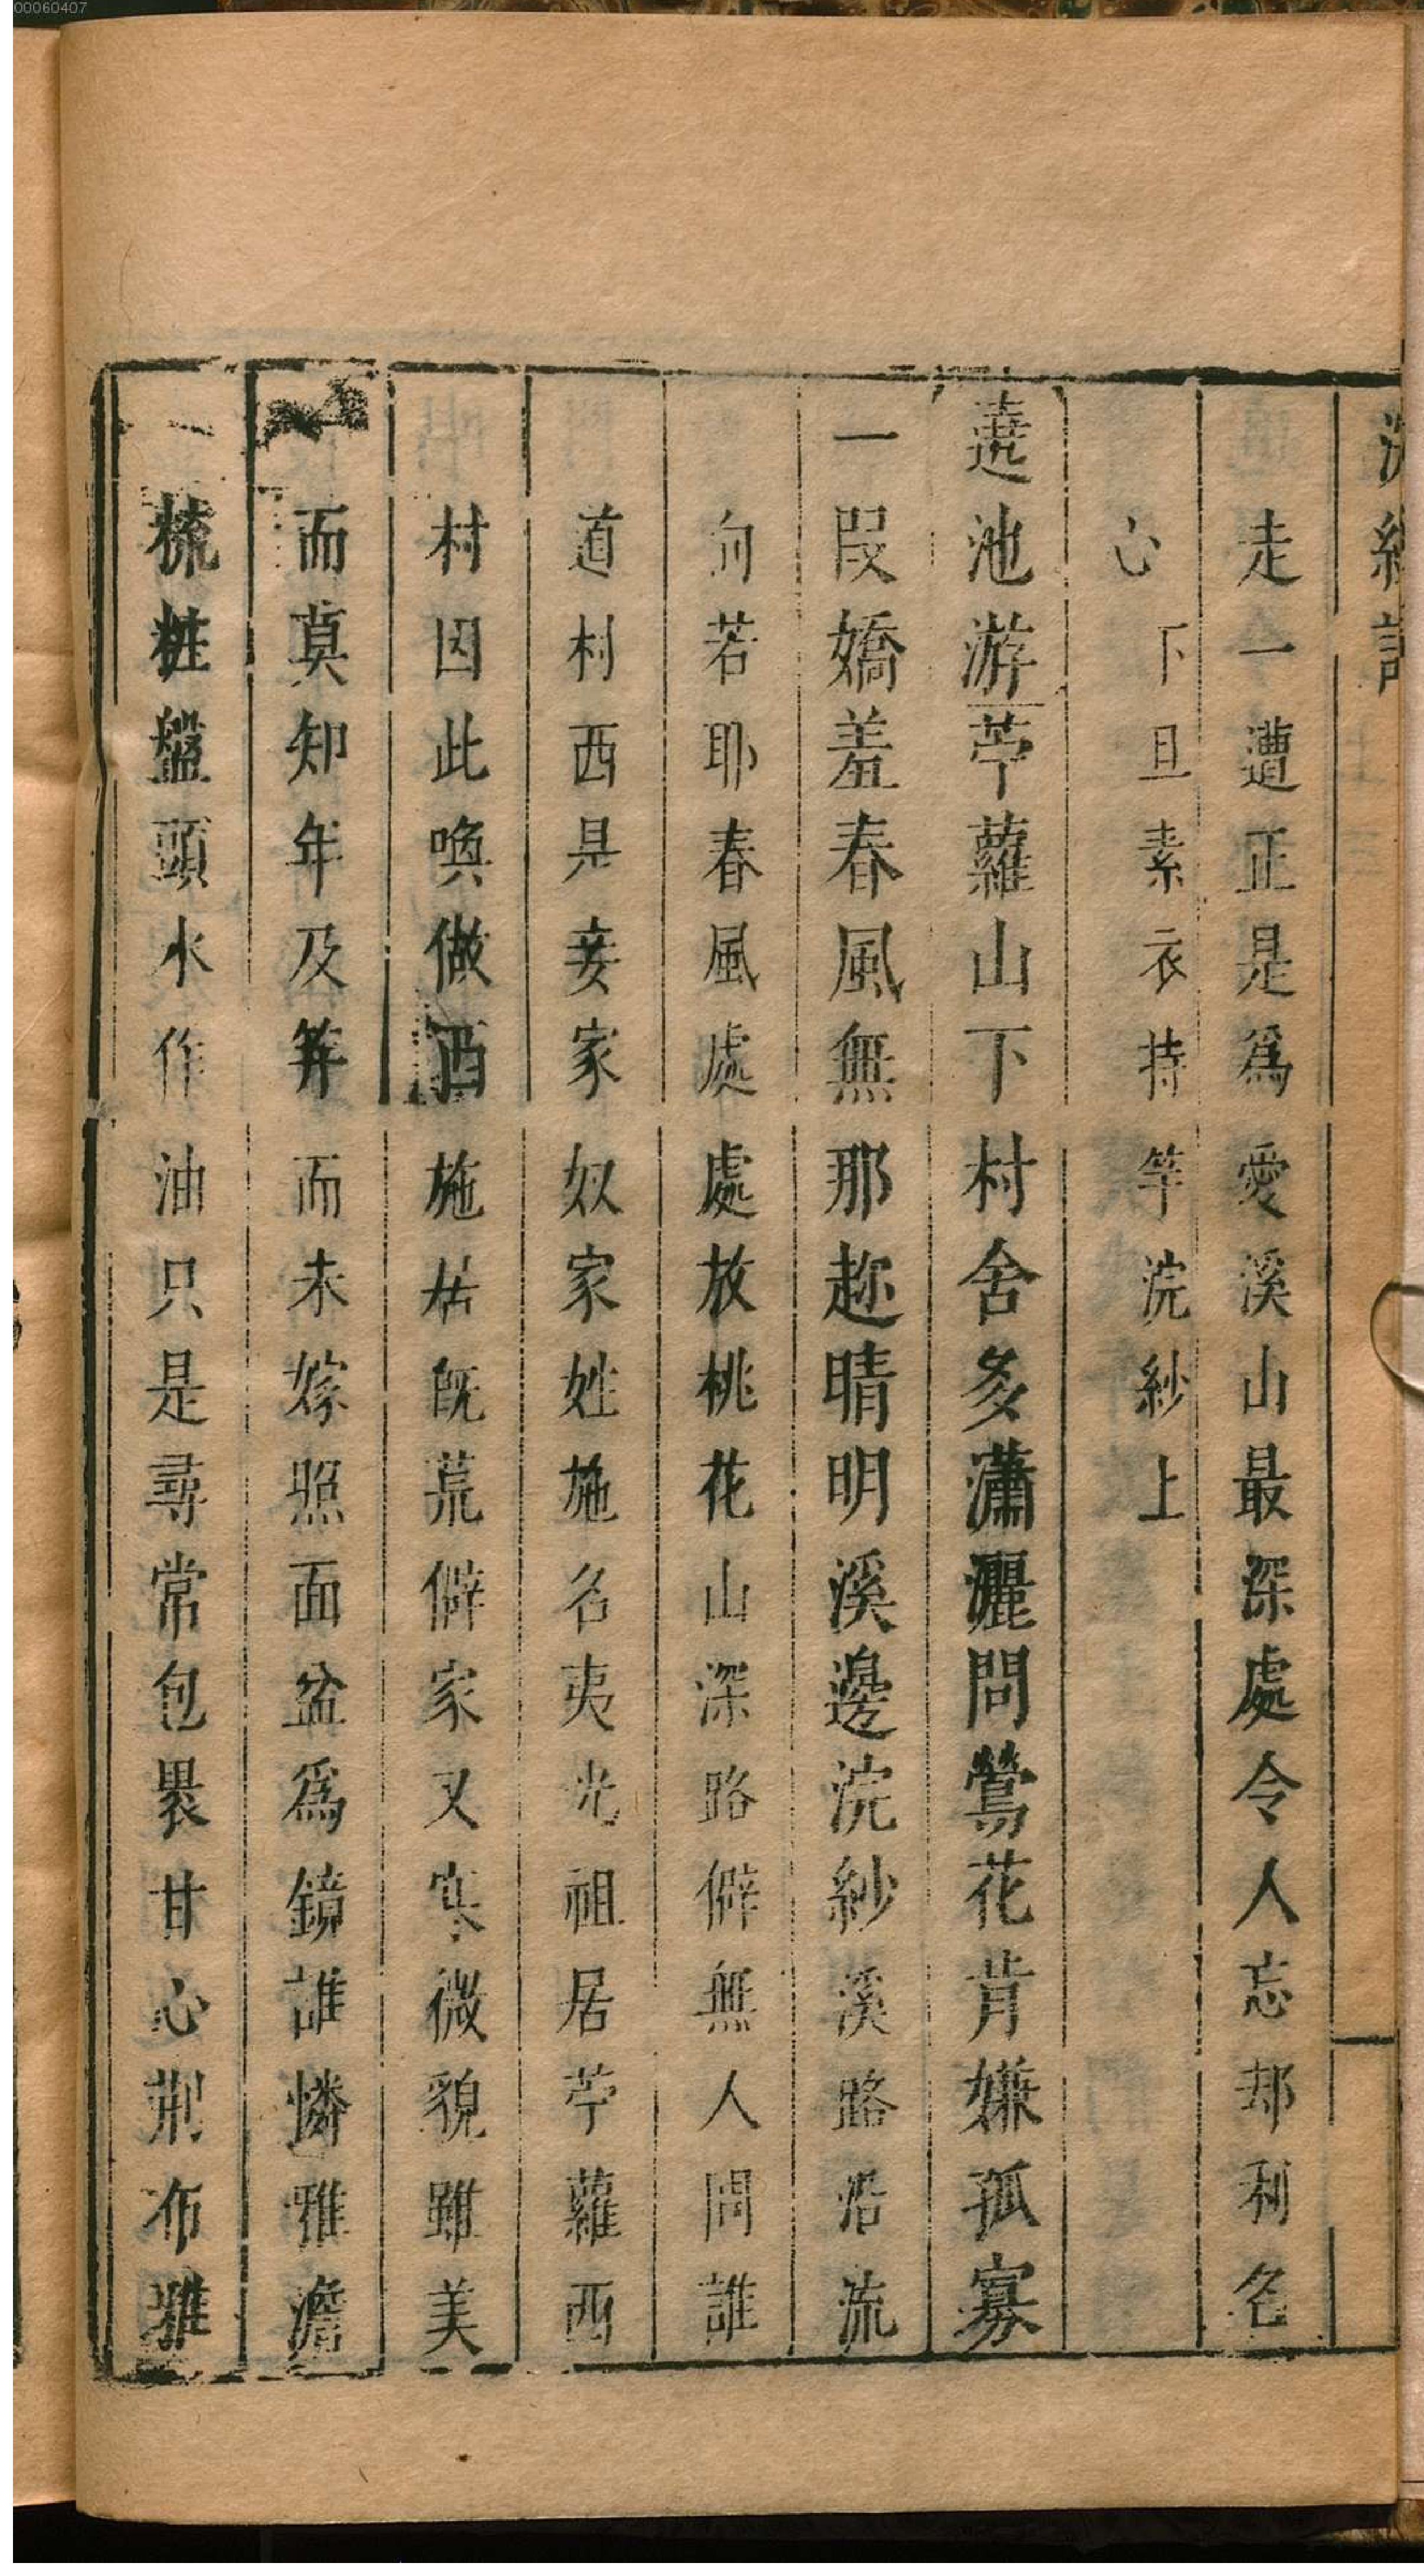 00060407
浣紗記
走一遭正是爲愛溪山最深處令人忘却利名
心 下旦素衣持竿浣紗上
遶池游苧蘿山下村舍多瀟灑問鶯花肯嫌孤寡
一段嬌羞春風無那趂晴明溪邊浣紗溪路沿流
向若耶春風處處放桃花山深路僻無人問誰
道村西是妾家奴家姓施名夷光祖居苧蘿西
村因此喚做西施居旣荒僻家又寒微貌雖美
而莫知年及笄而未嫁照面盆爲鏡誰憐雅澹
梳粧盤頭水作油只是尋常包裹甘心荆布雅